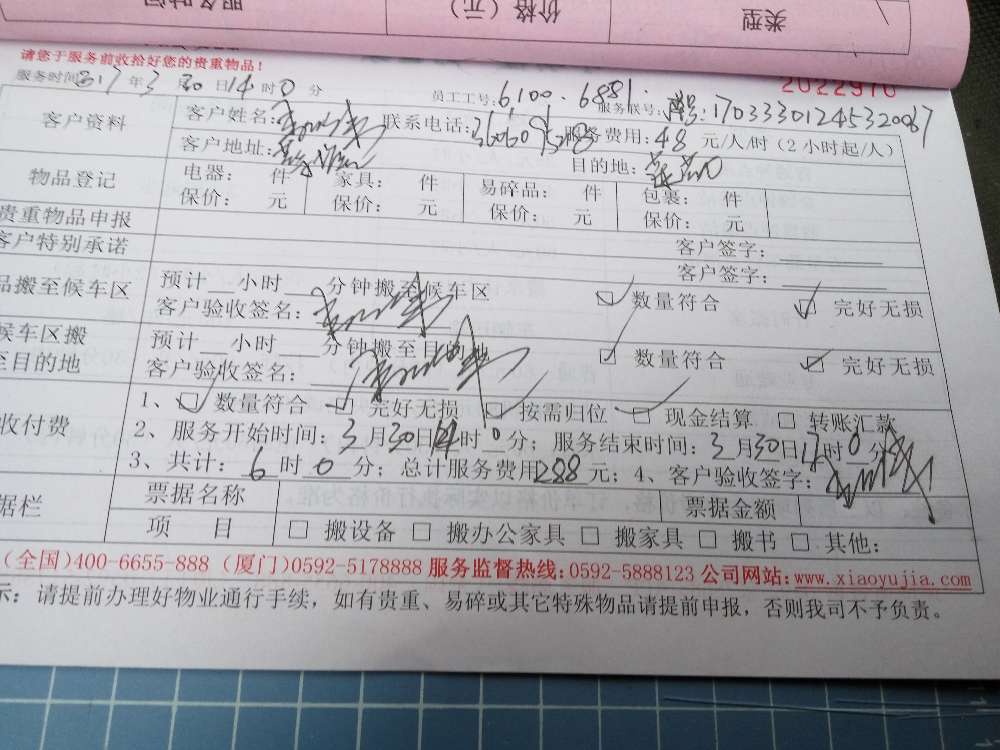 类型 价格（元） 服务时间
请您于服务前收拾好您的贵重物品！
2022970
服务时间 317 年 3 月 30 日 14 时 0 分 员工工号: 6100.6881. 服务联号: 1703330124532087
客户资料 客户姓名: 联系电话: 服务费用: 48 元/人/时（2小时起/人）
客户地址: 目的地:
物品登记 电器: 件 家具: 件 易碎品: 件 包裹: 件
保价: 元 保价: 元 保价: 元 保价: 元
贵重物品申报
客户特别承诺 客户签字:
客户签字:
品搬至候车区 预计 小时 分钟搬至候车区 数量符合 完好无损
客户验收签名:
候车区搬 预计 小时 分钟搬至目的地 数量符合 完好无损
至目的地 客户验收签名:
1、 数量符合 完好无损 按需归位 现金结算 转账汇款
收付费 2、服务开始时间: 3 月 30 日 14 时 0 分; 服务结束时间: 3 月 30 日 17 时 0 分
3、共计: 6 时 0 分; 总计服务费用 288 元; 4、客户验收签字:
据栏 票据名称 票据金额
项目 搬设备 搬办公家具 搬家具 搬书 其他:
(全国)400-6655-888 (厦门)0592-5178888 服务监督热线:0592-5888123 公司网站:www.xiaoyujia.com
示: 请提前办理好物业通行手续，如有贵重、易碎或其它特殊物品请提前申报，否则我司不予负责。